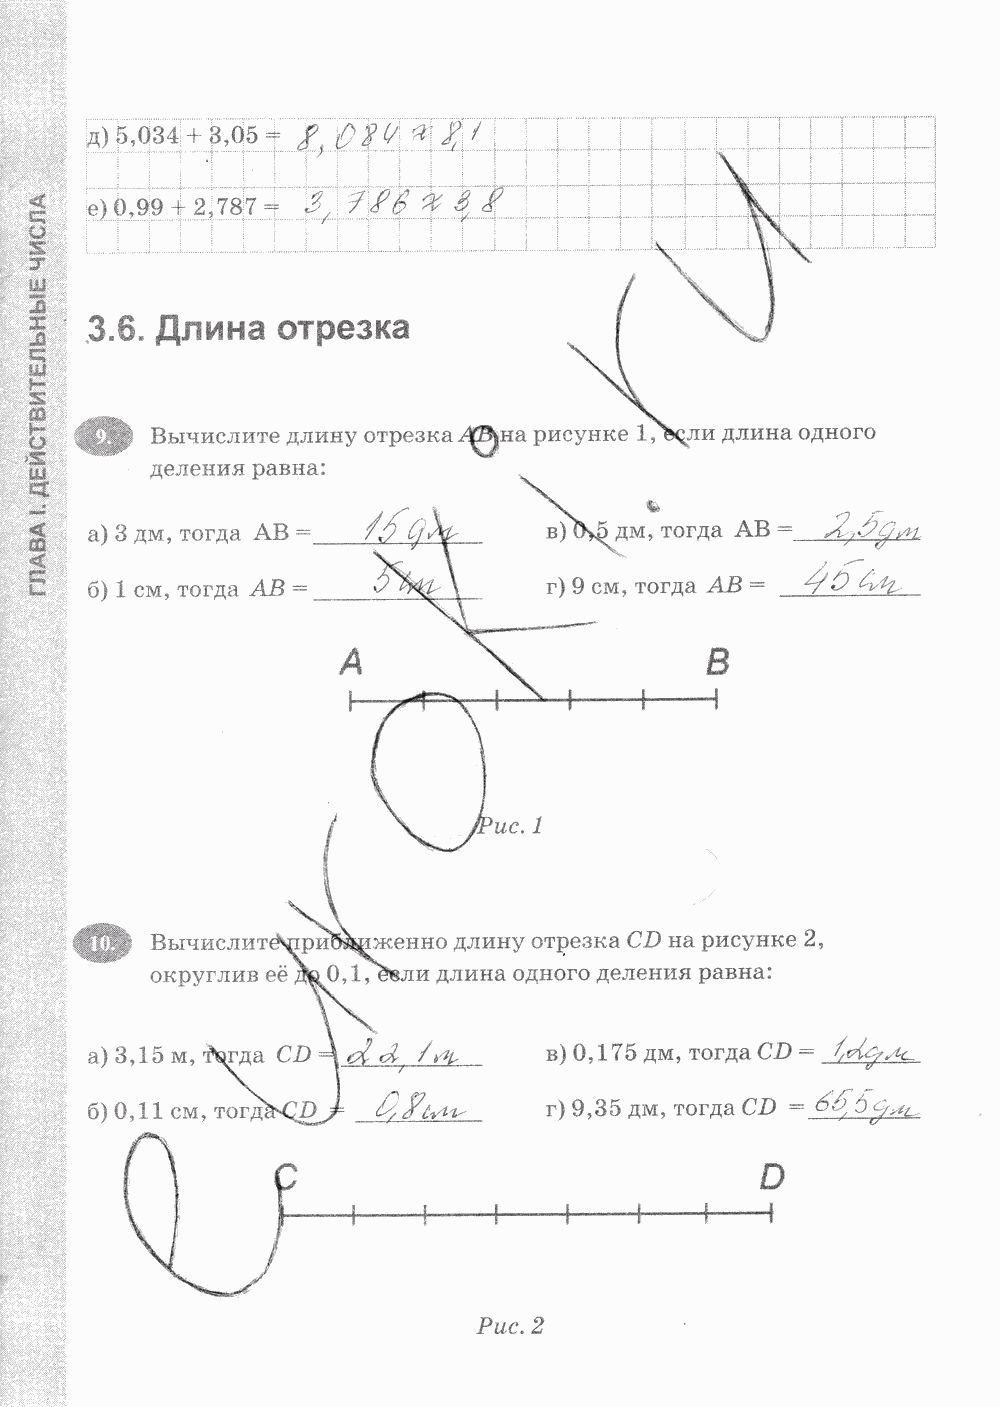 д) 5,034 + 3,05 = 8,084 ≈ 8,1
е) 0,99 + 2,787 = 3,786 ≈ 3,8
ГЛАВА I. ДЕЙСТВИТЕЛЬНЫЕ ЧИСЛА
3.6. Длина отрезка
9. Вычислите длину отрезка AB на рисунке 1, если длина одного
деления равна:
а) 3 дм, тогда AB = 15 дм
в) 0,5 дм, тогда AB = 2,5 дм
б) 1 см, тогда AB = 5 см
г) 9 см, тогда AB = 45 см
A B
Рис. 1
10. Вычислите приближенно длину отрезка CD на рисунке 2,
округлив её до 0,1, если длина одного деления равна:
а) 3,15 м, тогда CD = 22,1 м
в) 0,175 дм, тогда CD = 1,2 дм
б) 0,11 см, тогда CD = 0,8 см
г) 9,35 дм, тогда CD = 65,5 дм
C D
Рис. 2